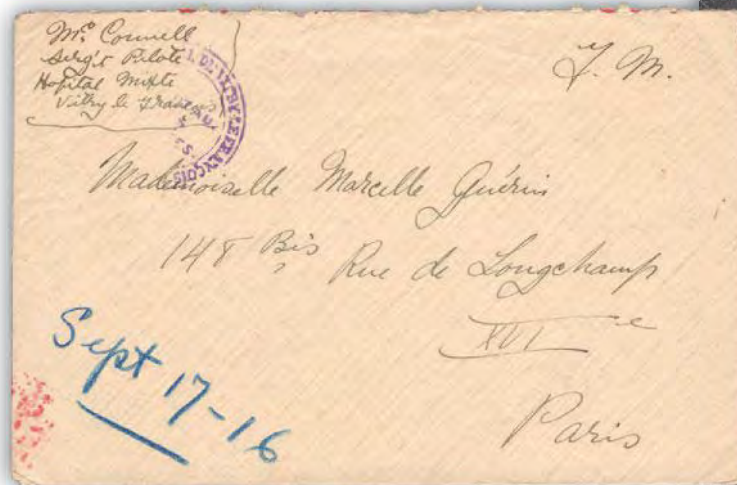 Mc Connell
Serg't Pilote
Hopital Mixte
Vitry le François
F. M.
DE VITRY-LE-FRANÇOIS
Mademoiselle Marcelle Guérin
148 Bis Rue de Longchamp
XVI e
Paris
Sept 17-16